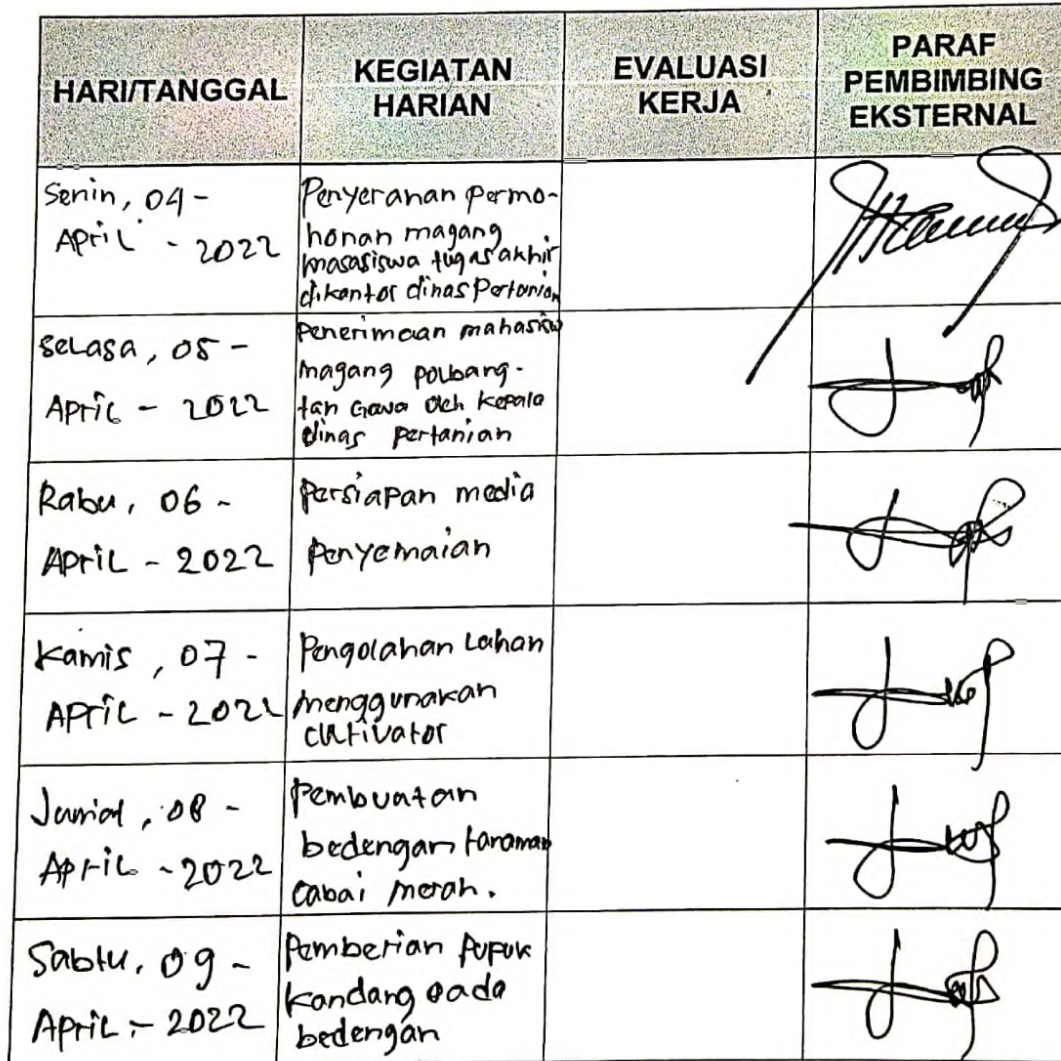 HARI/TANGGAL
KEGIATAN
HARIAN
EVALUASI
KERJA
PARAF
PEMBIMBING
EKSTERNAL
Senin, 04 -
April - 2022
Penyeranan Permo-
honan magang
masasiswa tugas akhir
dikantor dinas Pertanian
Selasa, 05 -
April - 2022
Penerimaan mahasisw
magang polbang-
tan Gowa Oleh Kepala
dinas pertanian
Rabu, 06 -
April - 2022
Persiapan media
Penyemaian
Kamis, 07 -
April - 2022
Pengolahan Lahan
menggunakan
cultivator
Jumat, 08 -
April - 2022
Pembuatan
bedengan tanaman
Cabai merah.
Sabtu, 09 -
April - 2022
Pemberian Pupuk
Kandang Pada
bedengan